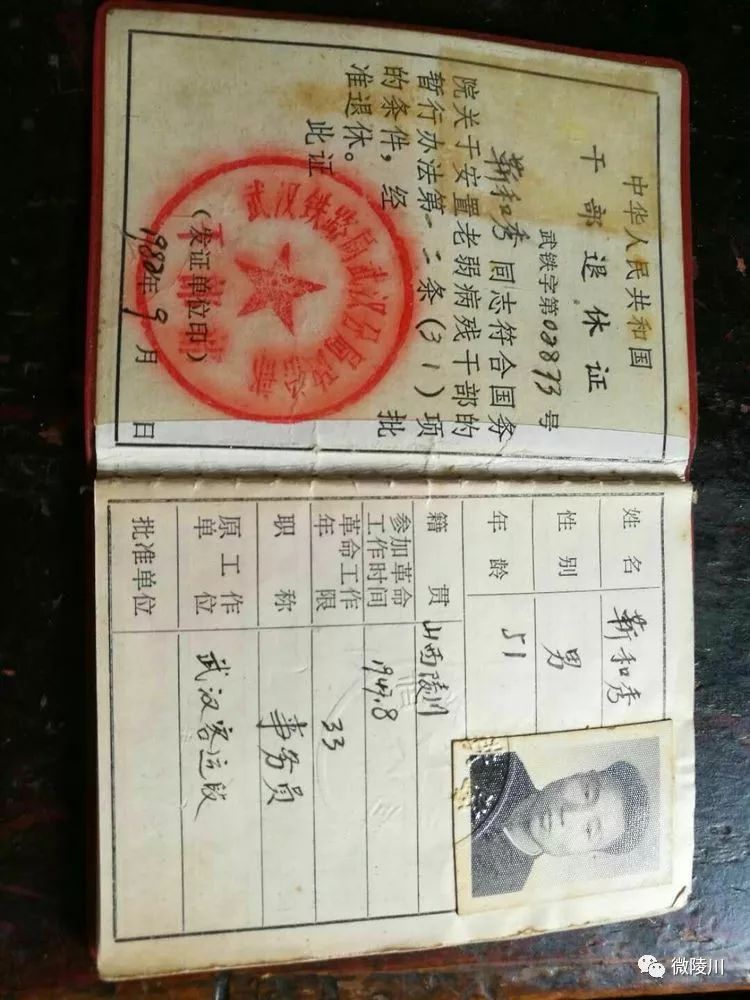 中华人民共和国
干部退休证
武铁字第02873号
靳和秀同志符合国务
院关于安置老弱病残干部的
暂行办法第一二条(31)项
的条件，经批
准退休。
此证
武汉铁路局武汉分局政治部
(发证单位印)
1980年9月 日
姓名 靳和秀
性别 男
年龄 51
籍贯 山西陵川
参加革命工作时间 1947.8
革命工作年限 33
职称 事务员
原工作单位 武汉客运段
批准单位
微陵川